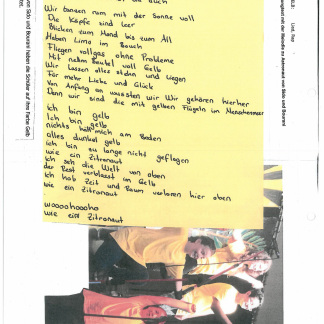 Wir tanzen rum mit der Sonne voll
Die Köpfe sind leer
Blicken zum Mond bis zum All
Haben Limo im Bauch
Fliegen vollgas ohne Probleme
Mit nem Beutel voll Gelb
Wir lassen alles stehn und liegen
Für mehr Liebe und Glück
Von Anfang an wussten wir Wir gehören hierher
Dann wir sind die mit gelben Flügeln im Menschenmeer
Ich bin gelb
Ich bin gelb
nichts hält mich am Boden
alles dunkel gelb
ich bin zu lange nicht geflogen
wie ein Zitronaut
Ich seh die Welt von oben
der Rest verblasst im Gelb
Ich hab Zeit und Raum verloren hier oben
wie ein Zitronaut
woooohooooho
wie ein Zitronaut
von Sido und Bourani haben die Schüler auf ihre Farbe Gelb
Lied, Text
mit der Melodie zu Astronaut von Sido und Bourani